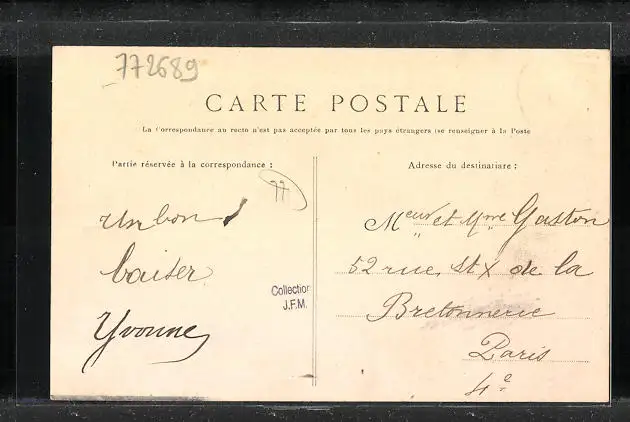 772689
CARTE POSTALE
La Correspondance au recto n'est pas acceptée par tous les pays étrangers (se renseigner à la Poste
Partie réservée à la correspondance :
77
Un bon
baiser
Yvonne
Collection
J.F.M.
Adresse du destinataire :
Meur et Mme Gaston
52 rue, St X de la
Bretonnerie
Paris
4e